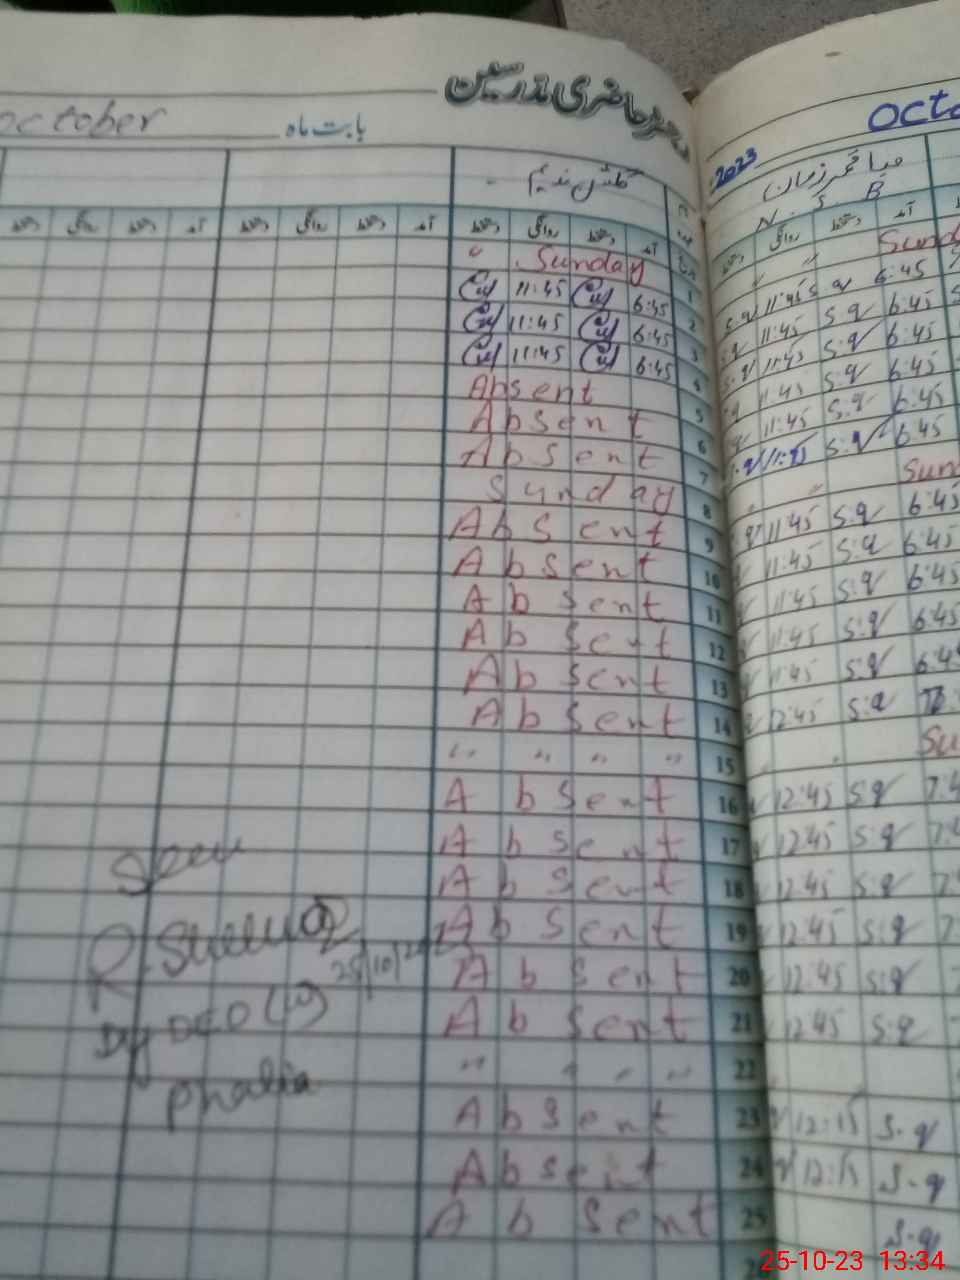 حاضری مدرسین
october
بابت ماہ
2023
Octo
گلشن ندیم
N. S. B
آمد دستخط روانگی دستخط
Sunday
1
6:45 11:45
2
6:45 11:45
3
6:45 11:45
4
Absent
5
Absent
6
Absent
7
Sunday
8
Absent
9
Absent
10
Absent
11
Absent
12
Absent
13
Absent
14
" " " "
15
Absent
16
Absent
17
Absent
18
Absent
19
Absent
20
Absent
21
" " " "
22
Absent
23
Absent
24
Absent
25
Seen
25/10/202
Dy DEO (W)
Phalia
آمد دستخط روانگی دستخط
Sund
6:45 S.q 11:45 S.q
6:45 S.q 11:45
6:45 S.q 11:45 S.q
6:45 S.q 11:45
6:45 S.q 11:45
6:45 S.q 11:45
Sund
6:45 S.q 11:45
6:45 S.q 11:45
6:45 S.q 11:45
6:45 S.q 11:45
6:45 S.q 11:45
S.q 12:45
Su
S.q 12:45
S.q 12:45
S.q 12:45
S.q 12:45
S.q 12:45
S.q 12:45
S.q 12:15
S.q 12:15
S.q
25-10-23 13:34